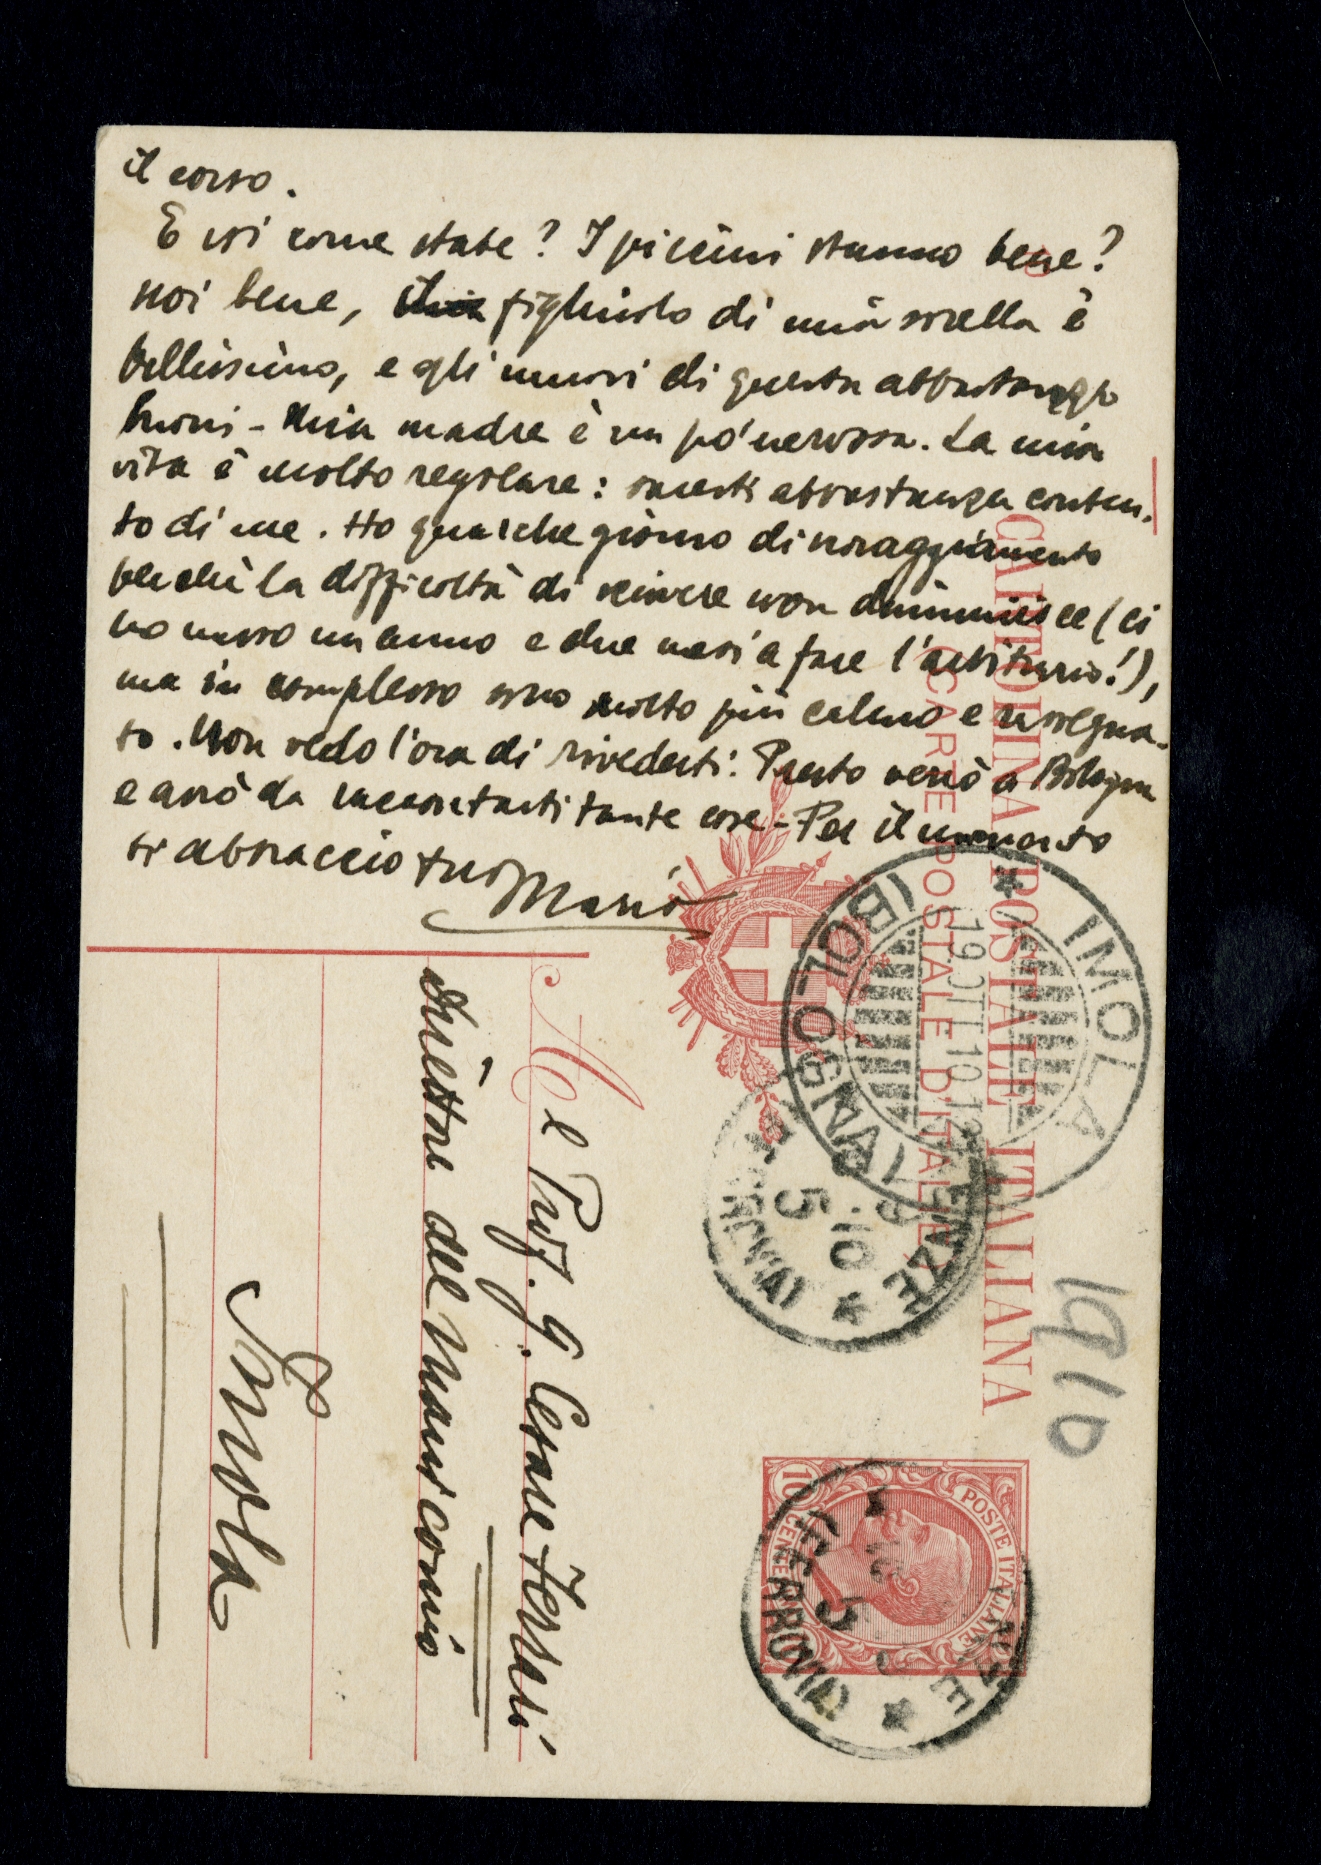 il corso.
E voi come state? I piccini stanno bene?
noi bene, figliuolo di mia sorella è
bellissimo, e gli umori di questa abbastanza
buoni - Mia madre è un po' nervosa. La mia
vita è molto regolare: saresti abbastanza conten-
to di me. Ho qualche giorno di scoraggiamento
perchè la difficoltà di scrivere non diminuisce (ci
ho messo un anno e due mesi a fare l'
ma in complesso sono molto più calmo e rassegna-
to. Non vedo l'ora di rivederti. Presto verrò a Bologna
e avrò da raccontarti tante cose - Per il momento
ti abbraccio tuo Mario
CARTOLINA POSTALE ITALIANA
(CARTE POSTALE D'ITALIE)
1910
IMOLA
(BOLOGNA)
19 OTT 10
(FERROVIA)
5
10
POSTE ITALIANE
10 CENT
(FERROVIA)
5
Al Prof. G. Cesare Ferrari
Direttore del Manicomio
Imola